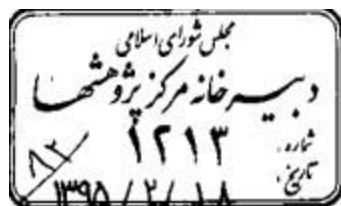 مجلس شورای اسلامی
دبیرخانه مرکز پژوهشها
شماره: ۱۲۱۳
تاریخ: ۱۳۹۵/۲/۱۸